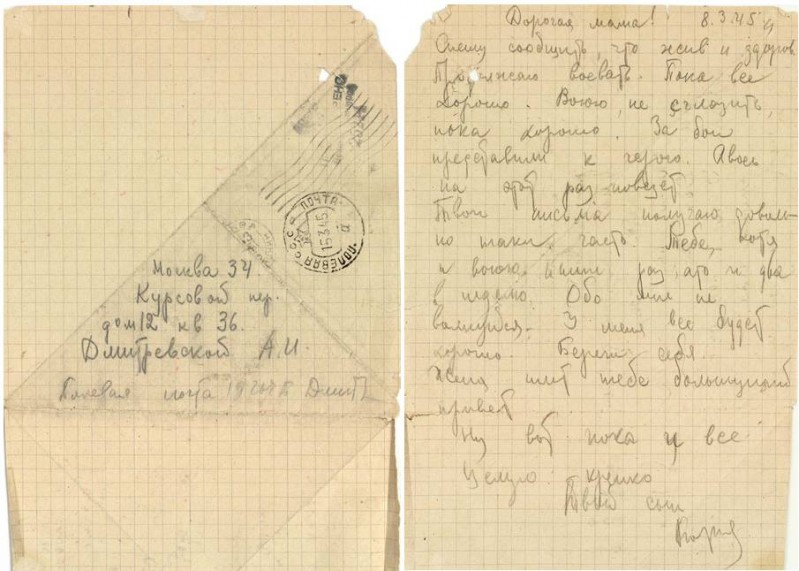 Москва 34.
Курсовой пер.
дом 12 кв 36.
Дмитревской А.И.
Полевая почта
ПОЧТА
ПОЛЕВАЯ
СССР
15 3 45
Дорогая мама! 8.3.45
Спешу сообщить, что жив и здоров.
Продолжаю воевать. Пока все
хорошо. Воюю, не сглазить,
пока хорошо. За бои
представили к герою. Авось
на этот раз повезет.
Твои письма получаю доволь-
но таки часто. Тебе, хотя
и воюю, пишу раз а то и два
в неделю. Обо мне не
волнуйся. У меня все будет
хорошо. Береги себя.
Жена шлет тебе большущий
привет.
Ну вот пока и все
Целую крепко
Твой сын